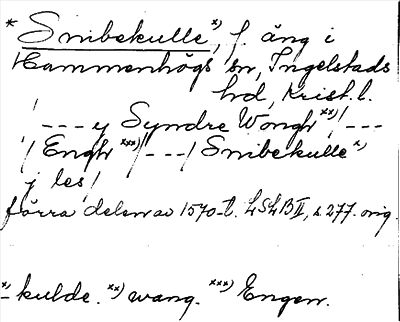 * Snibekulle x), f. äng i
Hammenhögs sn, Ingelstads
hd, Krist. l.
/---y Syndre Wongh xx)/---
/Engh xxx)/---/Snibekulle x)
j les/
förra delen av 1570-t. LSLB II, s 277. orig.
x) -kulde. xx) wang. xxx) Engen.